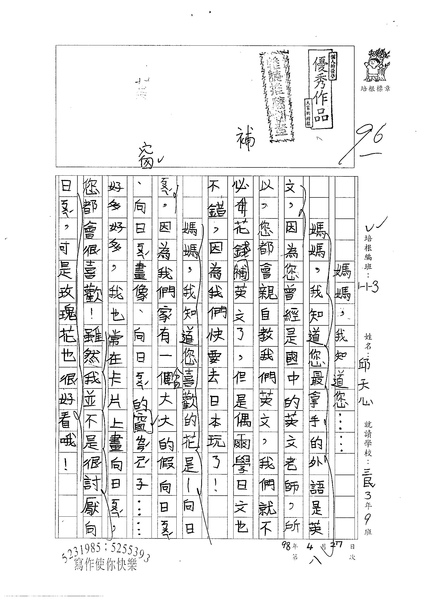 培根標章
優秀作品
96
補
窗
培根編班：1-1-3
姓名：邱天心
就讀學校：三民3年9班
98年4月27日
第八次
媽媽，我知道您……
媽媽，我知道您最拿手的外語是英
文，因為您曾經是國中的英文老師，所
以，您都會親自教我們英文，我們就不
必花錢英文了，但是偶爾學日文也
不錯，因為我們快要去日本玩了！
媽媽，我知道您喜歡的花是—向日
葵，因為我們家有一個大大的假向日葵
、向日葵畫像、向日葵的窗子……
好多好多，我也常在卡片上畫向日葵，
您都會很喜歡！雖然我並不是很討厭向
日葵，可是玫瑰花也很好看哦！
5231985：5255393
寫作使你快樂